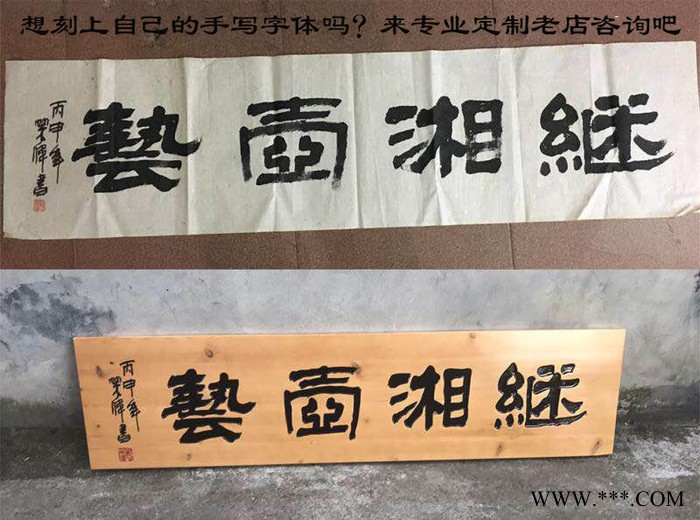 想刻上自己的手写字体吗？来专业定制老店咨询吧
継湘壺藝
丙申年
書
継湘壺藝
丙申年
書
WWW.***.COM